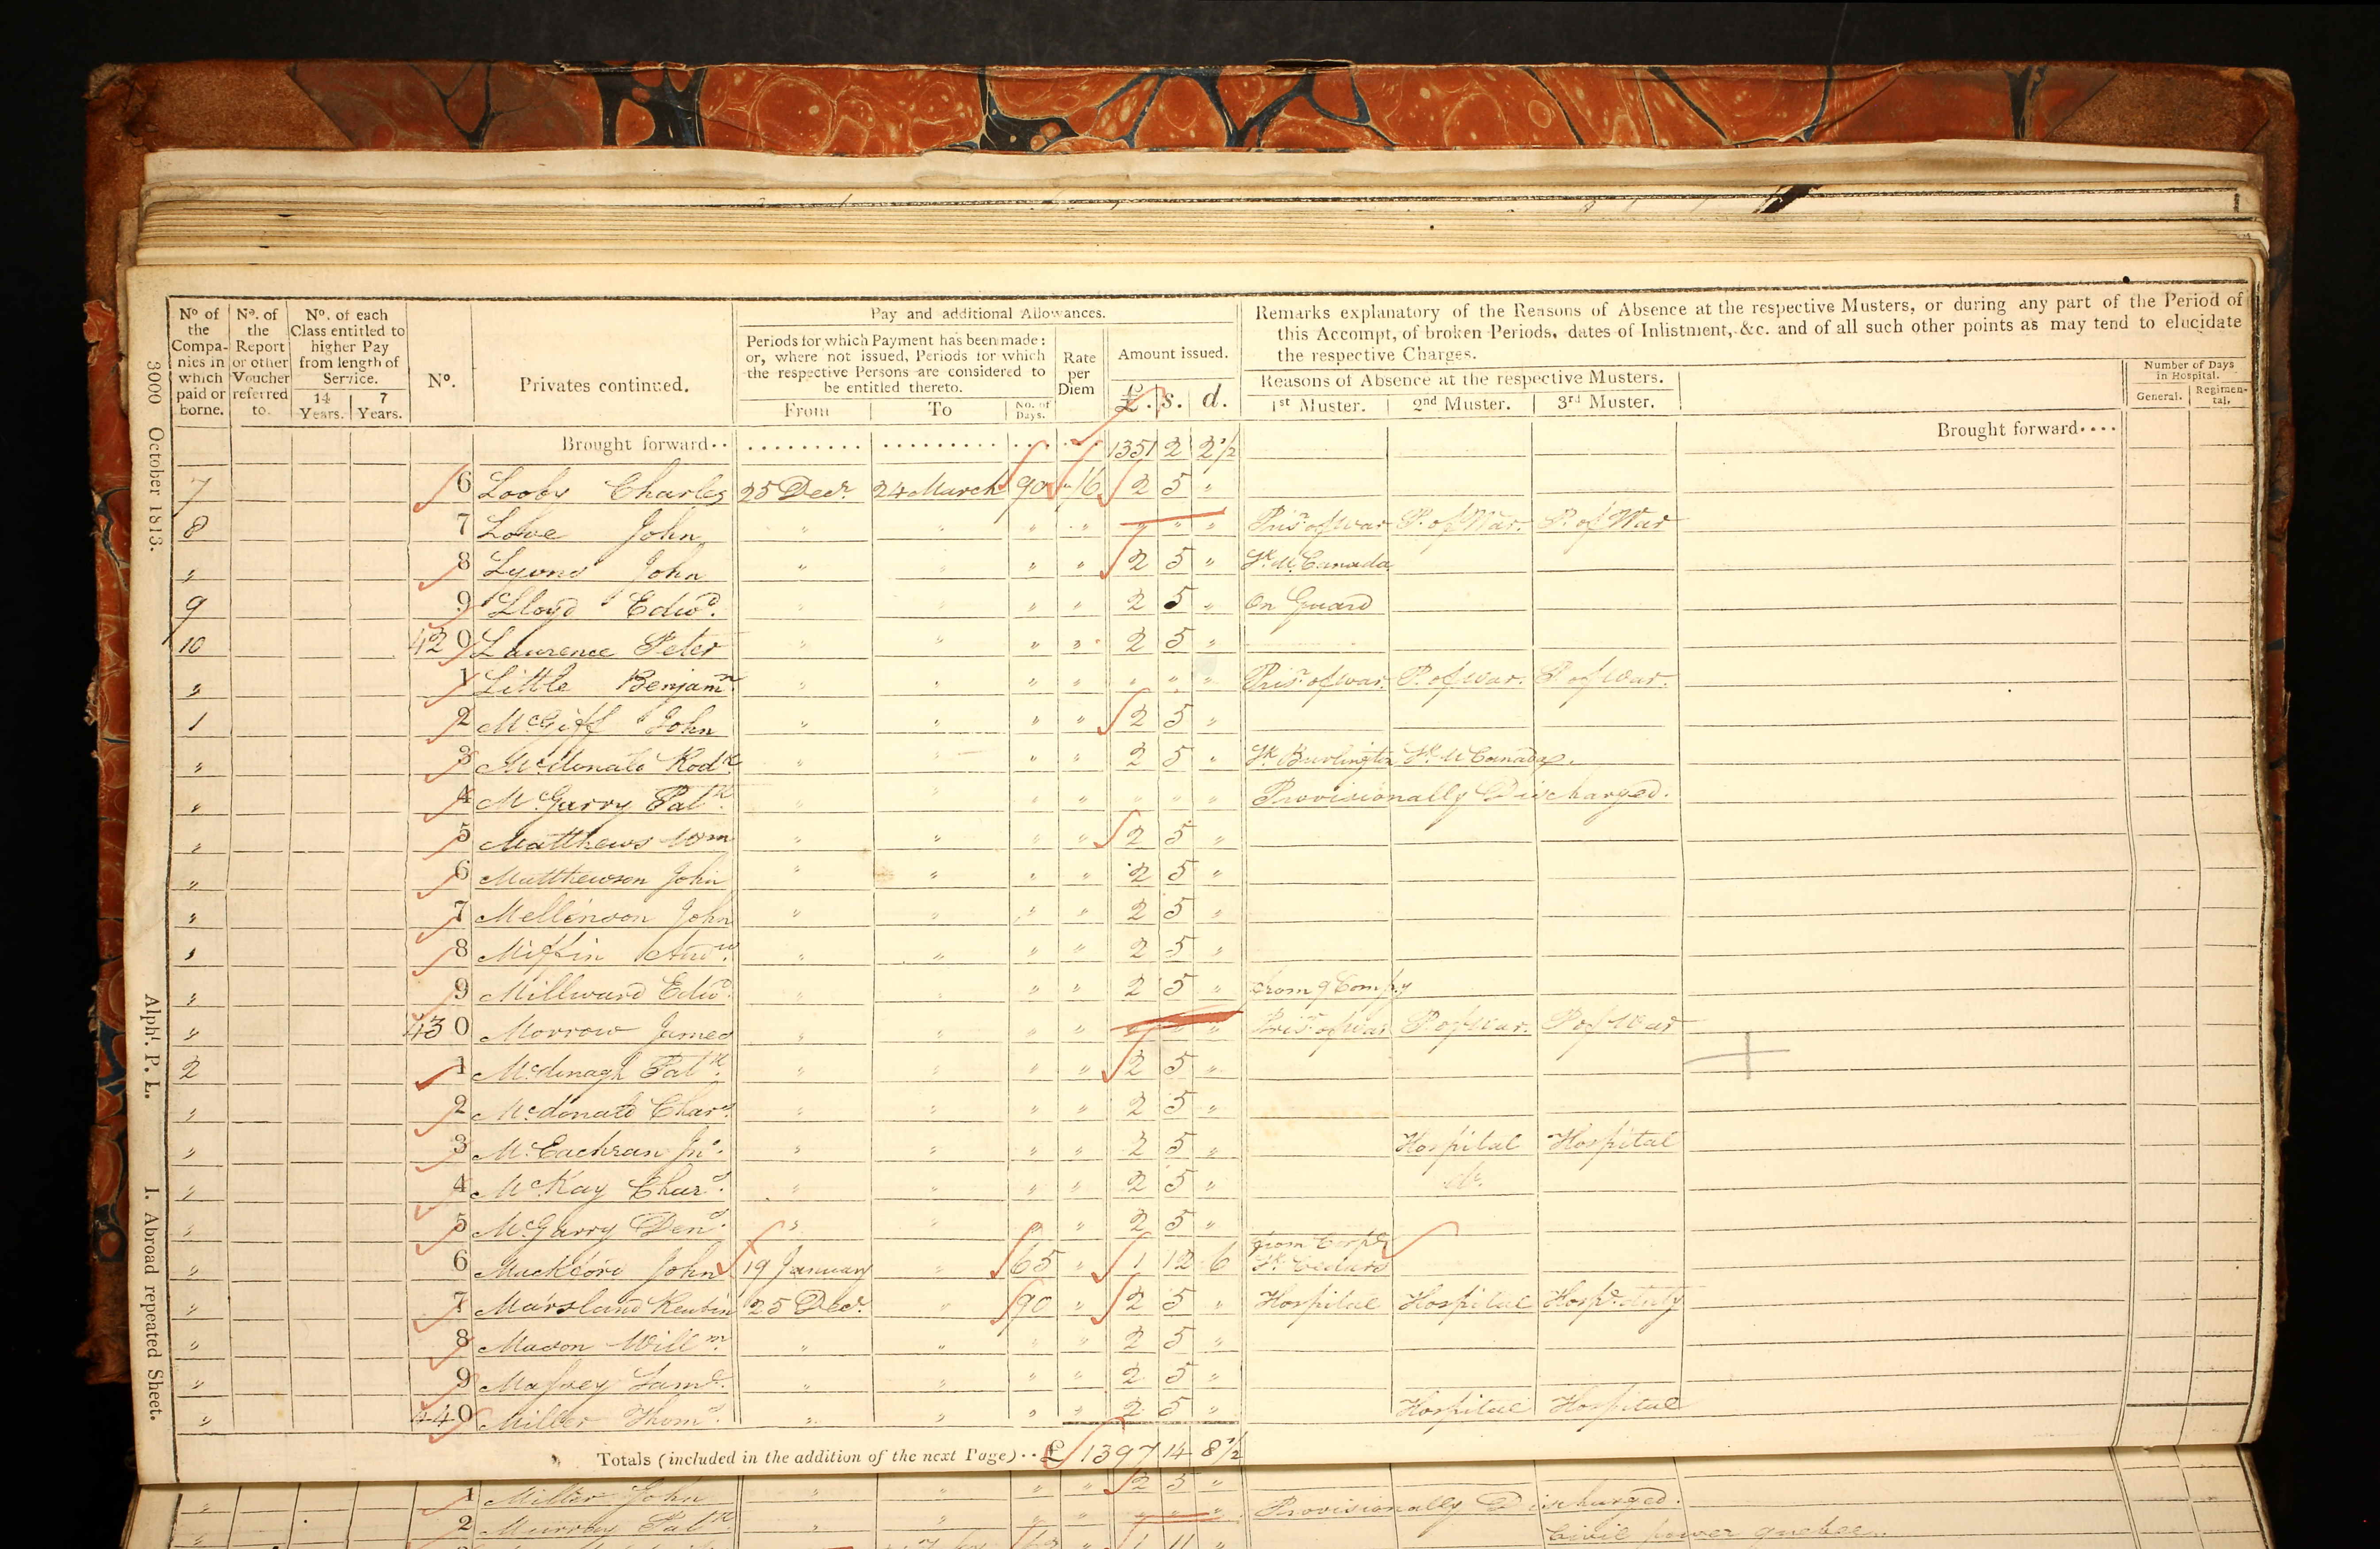 3000 October 1813.
Alphl. P. L.
1. Abroad repeated Sheet.
No of the Companies in which paid or borne.
No. of the Report or other Voucher referred to.
No. of each Class entitled to higher Pay from length of Service.
14 Years.
7 Years.
No.
Privates continued.
Pay and additional Allowances.
Periods for which Payment has been made: or, where not issued, Periods for which the respective Persons are considered to be entitled thereto.
From To No. of Days.
Rate per Diem
Amount issued.
£. s. d.
Remarks explanatory of the Reasons of Absence at the respective Musters, or during any part of the Period of
this Accompt, of broken Periods, dates of Inlistment, &c. and of all such other points as may tend to elucidate
the respective Charges.
Reasons of Absence at the respective Musters.
1st Muster. 2nd Muster. 3rd Muster.
Number of Days in Hospital.
General. Regimental.
Brought forward.. 1351 2 2½ Brought forward....
7 6 Looby Charles 25 Decr. 24 March 90 "/6 2 5 "
8 7 Lowe John " " " " " " " Prisr. of War P. of War. P. of War
" 8 Lyons John " " " " 2 5 " Sk. U. Canada
9 9 Lloyd Edwd. " " " " 2 5 " On Guard
10 420 Laurence Peter " " " " 2 5 "
" 1 Little Benjamn. " " " " " " " Prisr. of War. P. of War. P of War.
1 2 McGiff John " " " " 2 5 "
" 3 McDonald Rodk. " " " " 2 5 " Sk Burlington Sk. U Canada.
" 4 McGarry Patk. " " " " " " " Provisionally Discharged.
" 5 Matthews Wm " " " " 2 5 "
" 6 Matthewson John " " " " 2 5 "
" 7 Mellinson John " " " " 2 5 "
" 8 Miffin Andw. " " " " 2 5 "
" 9 Millward Edwd. " " " " 2 5 " from 9 Compy
" 430 Morrow James " " " " " " " Prisr. of War P of War. P of War
2 1 McDonagh Patk. " " " " 2 5 "
" 2 McDonald Chars. " " " " 2 5 "
" 3 McEachran Jno. " " " " 2 5 " Hospital Hospital
" 4 McKay Chars. " " " " 2 5 " do.
" 5 McGarry Dens. " " " 2 5 "
" 6 John 19 January " 65 " 1 12 6 from Corpl Sk. Cedars
" 7 Marsland Reubin 25 Decr. " 90 " 2 5 " Hospital Hospital Hospl. duty
" 8 Mason Willm. " " " " 2 5 "
" 9 Massey Saml. " " " " 2 5 "
" 440 Miller Thoms. " " " " 2 5 " Hospital Hospital
Totals (included in the addition of the next Page).. £ 1397 14 8½
" 1 Miller John " " " " 2 5 "
" 2 Murray Patk " " " " " " " Provisionally Discharged.
Civil power quebec.